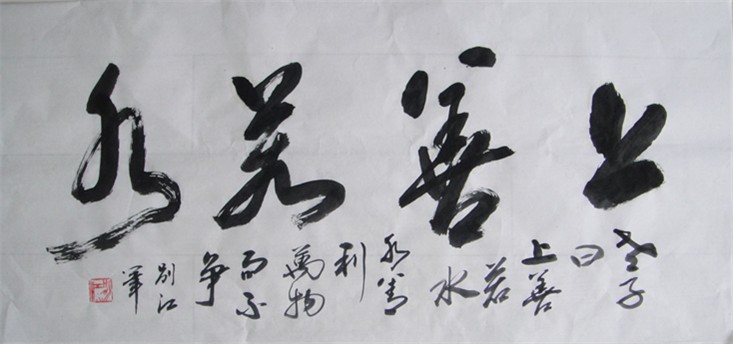 上善若水
老子
曰
上善
若
水
水善
利
萬物
而不
争
别江
筆